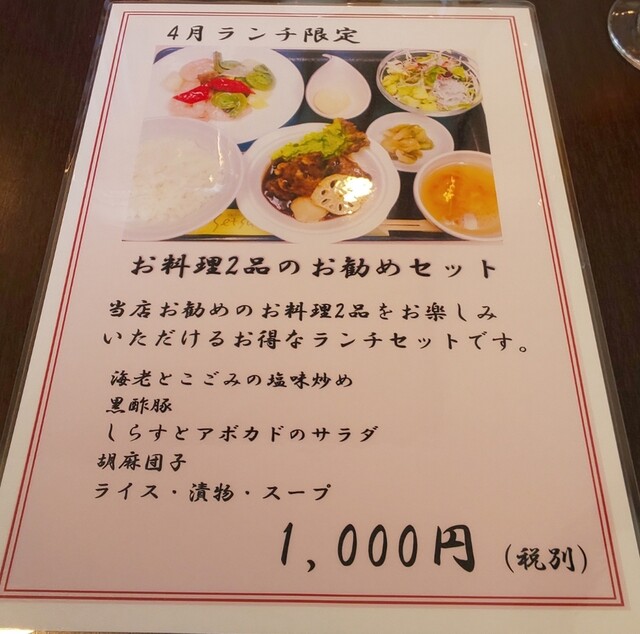 4月ランチ限定
お料理2品のお勧めセット
当店お勧めのお料理2品をお楽しみ
いただけるお得なランチセットです。
海老とこごみの塩味炒め
黒酢豚
しらすとアボカドのサラダ
胡麻団子
ライス・漬物・スープ
1,000円 (税別)